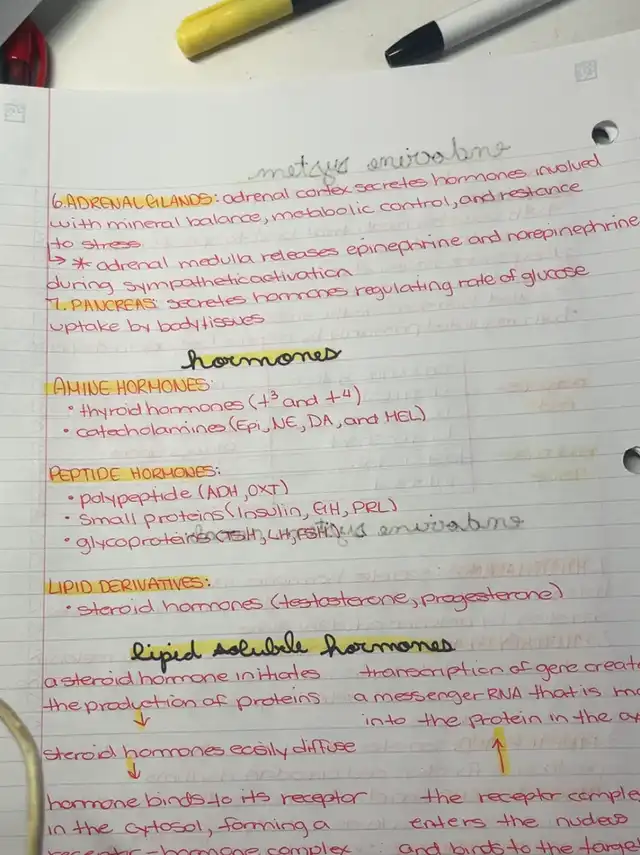 6. ADRENAL GLANDS: adrenal cortex secretes hormones involved
with mineral balance, metabolic control, and restance
to stress
↳ * adrenal medulla releases epinephrine and norepinephrine
during sympathetic activation
7. PANCREAS: secretes hormones regulating rate of glucose
uptake by body tissues
hormones
AMINE HORMONES:
• thyroid hormones (t³ and t⁴)
• catecholamines (Epi, NE, DA, and MEL)
PEPTIDE HORMONES:
• polypeptide (ADH, OXT)
• small proteins (Insulin, GH, PRL)
• glycoproteins (TSH, LH, FSH)
LIPID DERIVATIVES:
• steroid hormones (testosterone, progesterone)
lipid soluble hormones
a steroid hormone initiates
the production of proteins
↓
steroid hormones easily diffuse
↓
hormone binds to its receptor
in the cytosol, forming a
receptor-hormone complex
transcription of gene create
a messenger RNA that is
into the protein in the
↑
the receptor comple
enters the nucleus
and binds to the targe